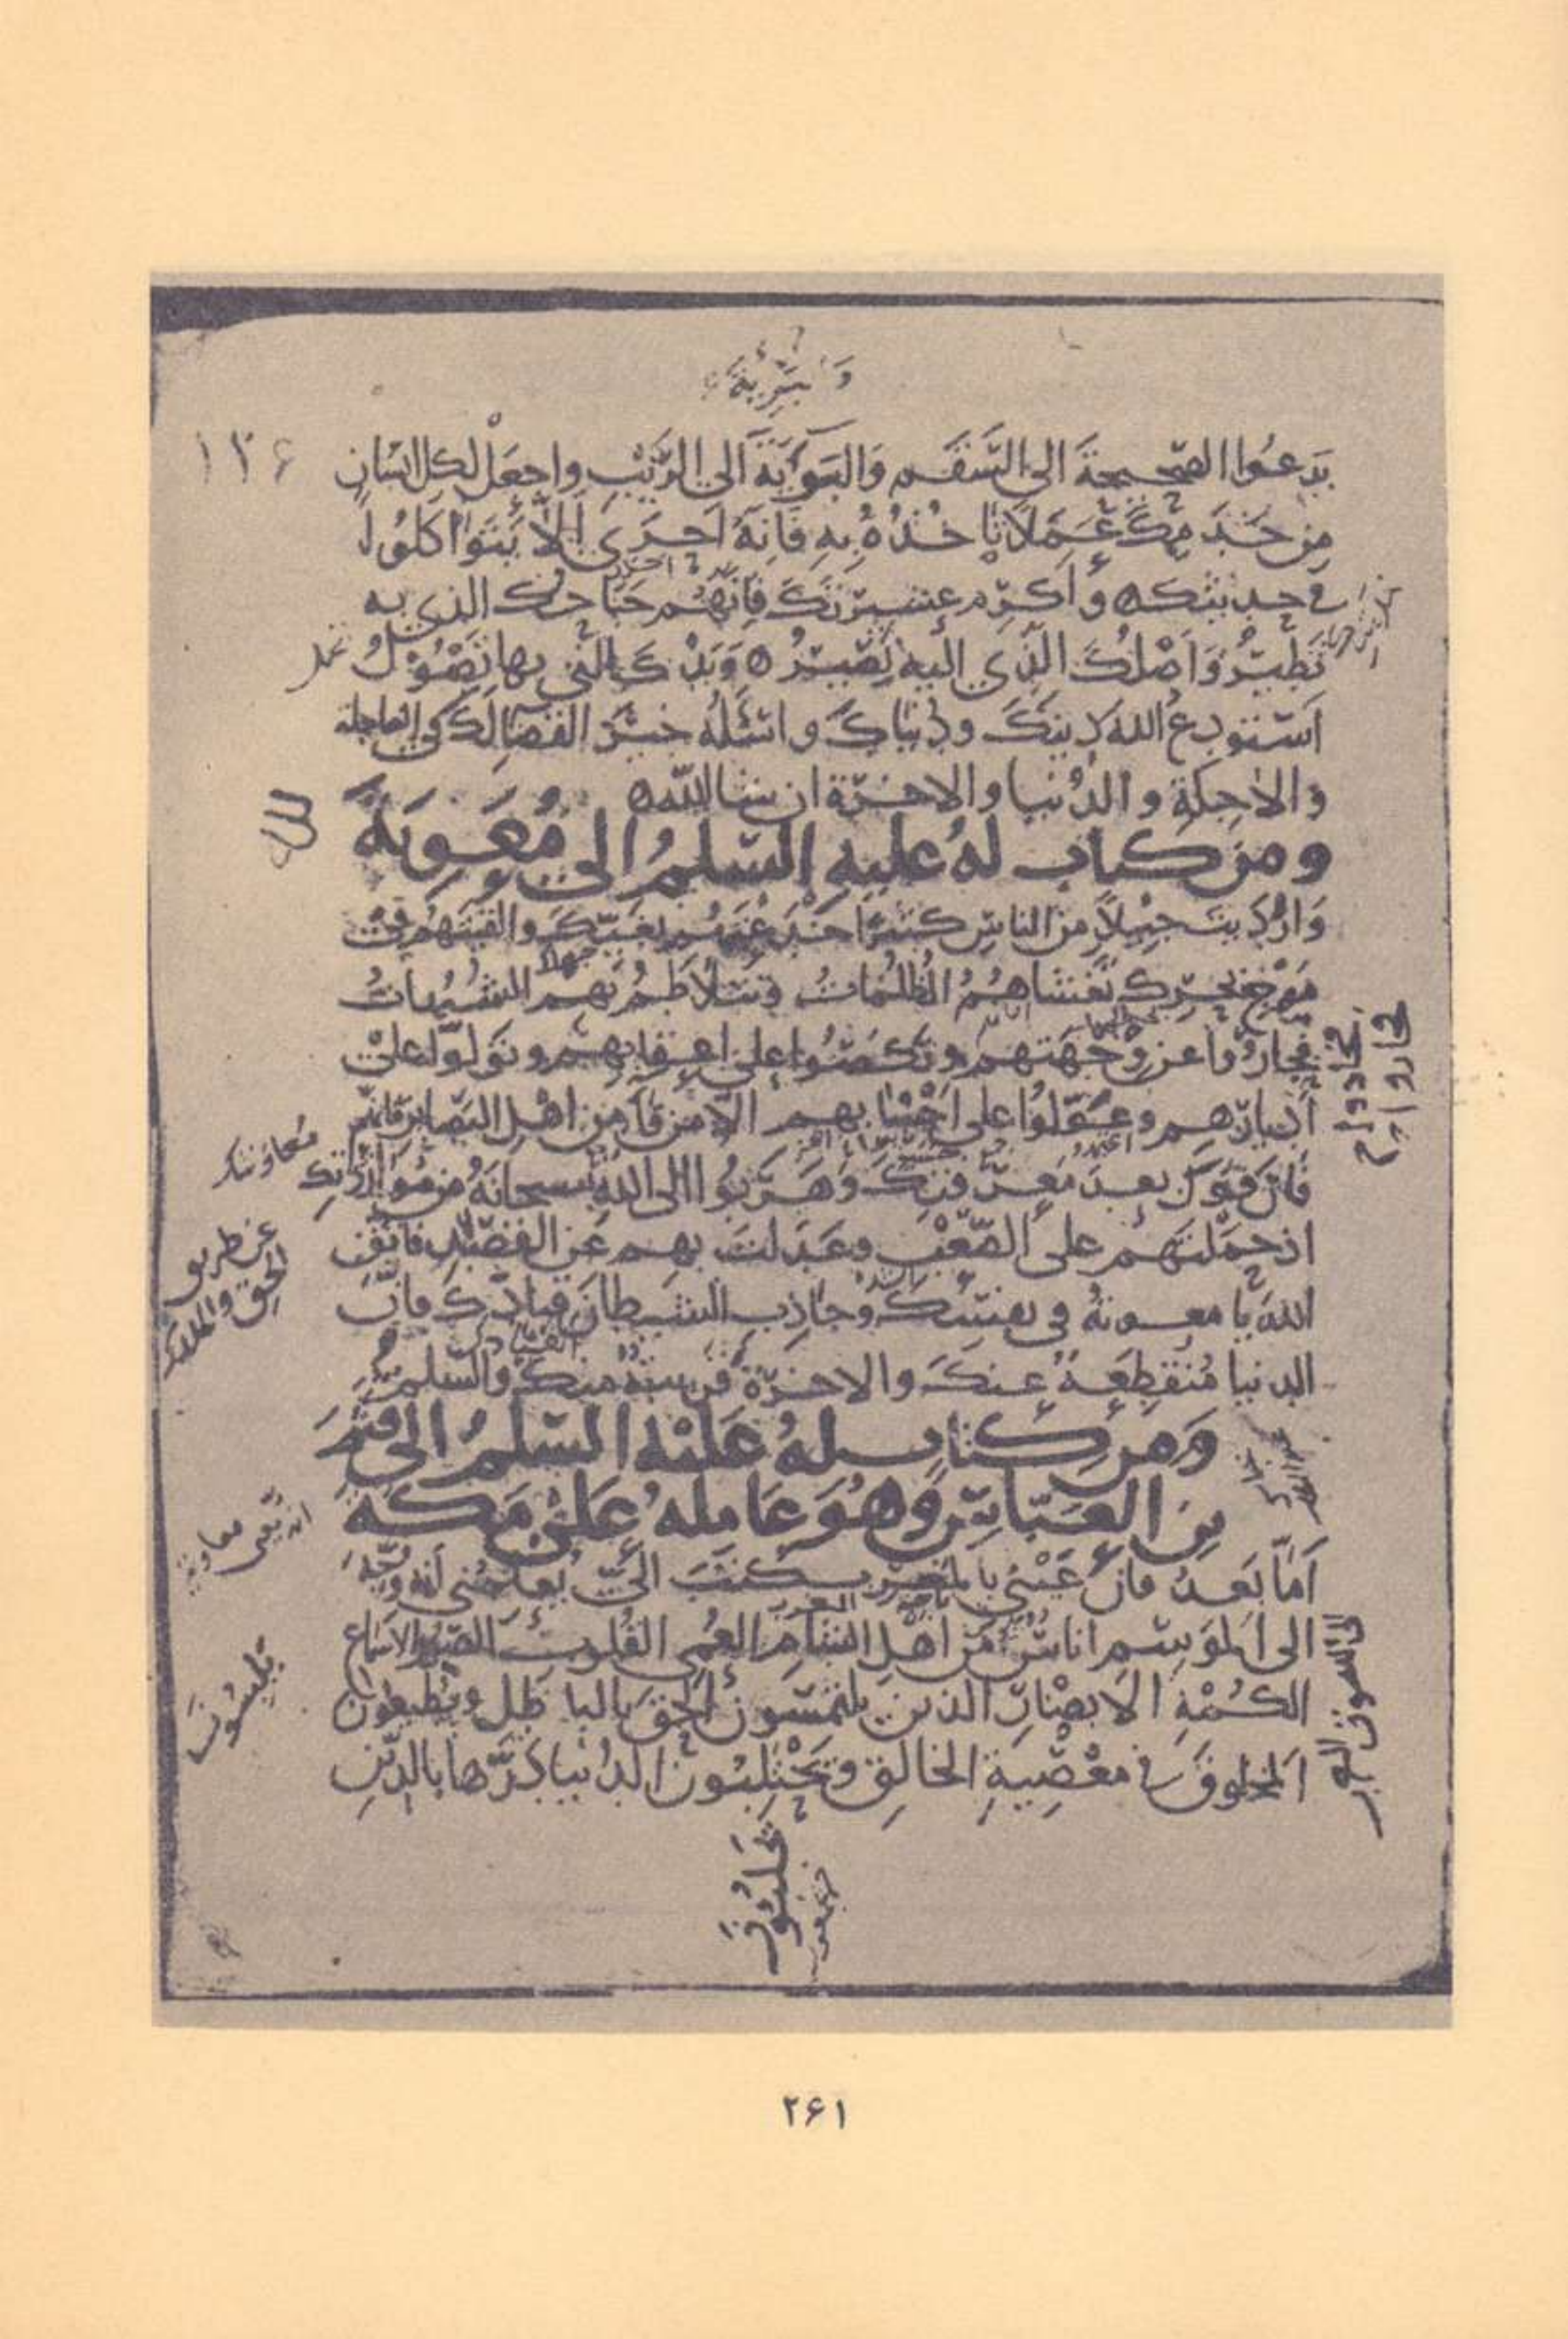 وَالبَرِيئَةَ
١٣۶
يَدعُوا الصّحيحةَ الى السَّقَم وَالبَريَةَ الى الرَّيْبِ واجعَلْ لكل انسَانٍ
مِن خَدَمِكَ عَمَلاً تَاخُذُهُ بِهِ فَانِهُ اَحرَى اَلاَّ يَتَواكَلُوا
في خدمتك ه وأكرِم عشيرتَكَ فاِنّهُم جَنَاحُك الذى به
تَطيرُ وَاَصْلُكَ الَّذي اليهِ تَصيرُ ه وَيَدُكَ التي بها تَصُوْلُ
اَستَودِعُ اللهَ دِينَكَ ودُنيَاكَ واسْئَلُهُ خَيرَ القَضَا لَكَ في العاجلة
والاٰجِلَةِ والدُنيا والاخرَة ان شا اللّٰه ه
ومن كتاب لهُ عليهِ السّلمُ الى مُعَوِيَةَ
وَارْدَيتَ جِيلاً من الناسِ كثيرًا خَدَعْتَهُم بِغَيِّكَ والقيتَهُم في
مَوْجِ بَحرِك تَغشَاهُمُ الظُّلمَاتُ وتَتَلاَطَمُ بهم الشُبُهاتُ
فجارُوا عن وِجْهَتهم ونَكَصُوا على اعقابهم وتَوَلَوّا على
اَدبارِهم وعَوَّلوُا على اَحْسَابهم الاّ من فَآ مِن اهْلِ البَصَاير فانهم
فَارَقوكَ بعدَ مَعرِفتِكَ وَهَرَبُوا الى اللهِ سبحانَهُ من مُوَازَرَتِكَ
اذ حمَلتَهُم على الصَّعْبِ وعَدَلتَ بِهم عَن القَصْدِ فاتّقِ
اللهَ يا معوية في نفسِكَ وجاذِب الشيطانَ قِيادَكَ فانَّ
الدنيا مُنقطِعَة عنكَ والاخرَةَ قريبَةٌ مِنكَ والسّلمُ
وَمن كتاب لهُ عَليْه السّلمُ الى قُثَمَ
بن العَبّاسِ وَهُوَ عَامِلهُ عَلىٰ مَكّة
اَمّا بَعدُ فانَّ عَيْني بالمَغربِ كَتَبَ اليَّ يُعلِمُني اَنهُ وُجِّهَ
الى المَوسِم اناسٌ مِن اَهْلِ الشامِ العُمي القُلوبِ الصُمِّ الاسماع
الكُمْهِ الاَبصَارِ الذين يلتمسون الحقَ بالباطِلِ ويُطيعُون
المخلوقَ في مَعْصِيةِ الخالق ويَحْتَلِبُونَ الدُنيا دَرَّها بالدّينِ
جهلاً
فجاروا
جاروا
عن طريق
الحق
يلبسون
يلبسون الحق
۲۶۱